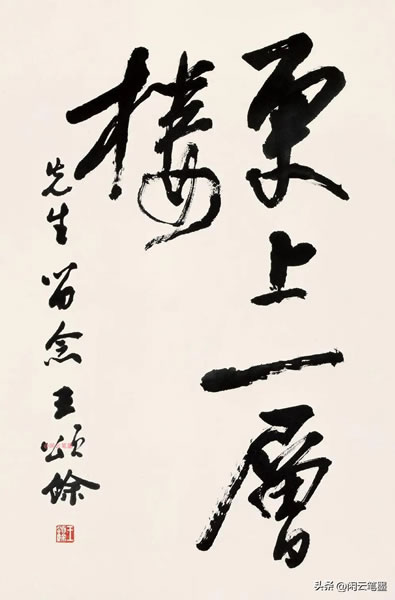 更上一層
樓
先生留念王頌餘
头条 @闲云笔墨